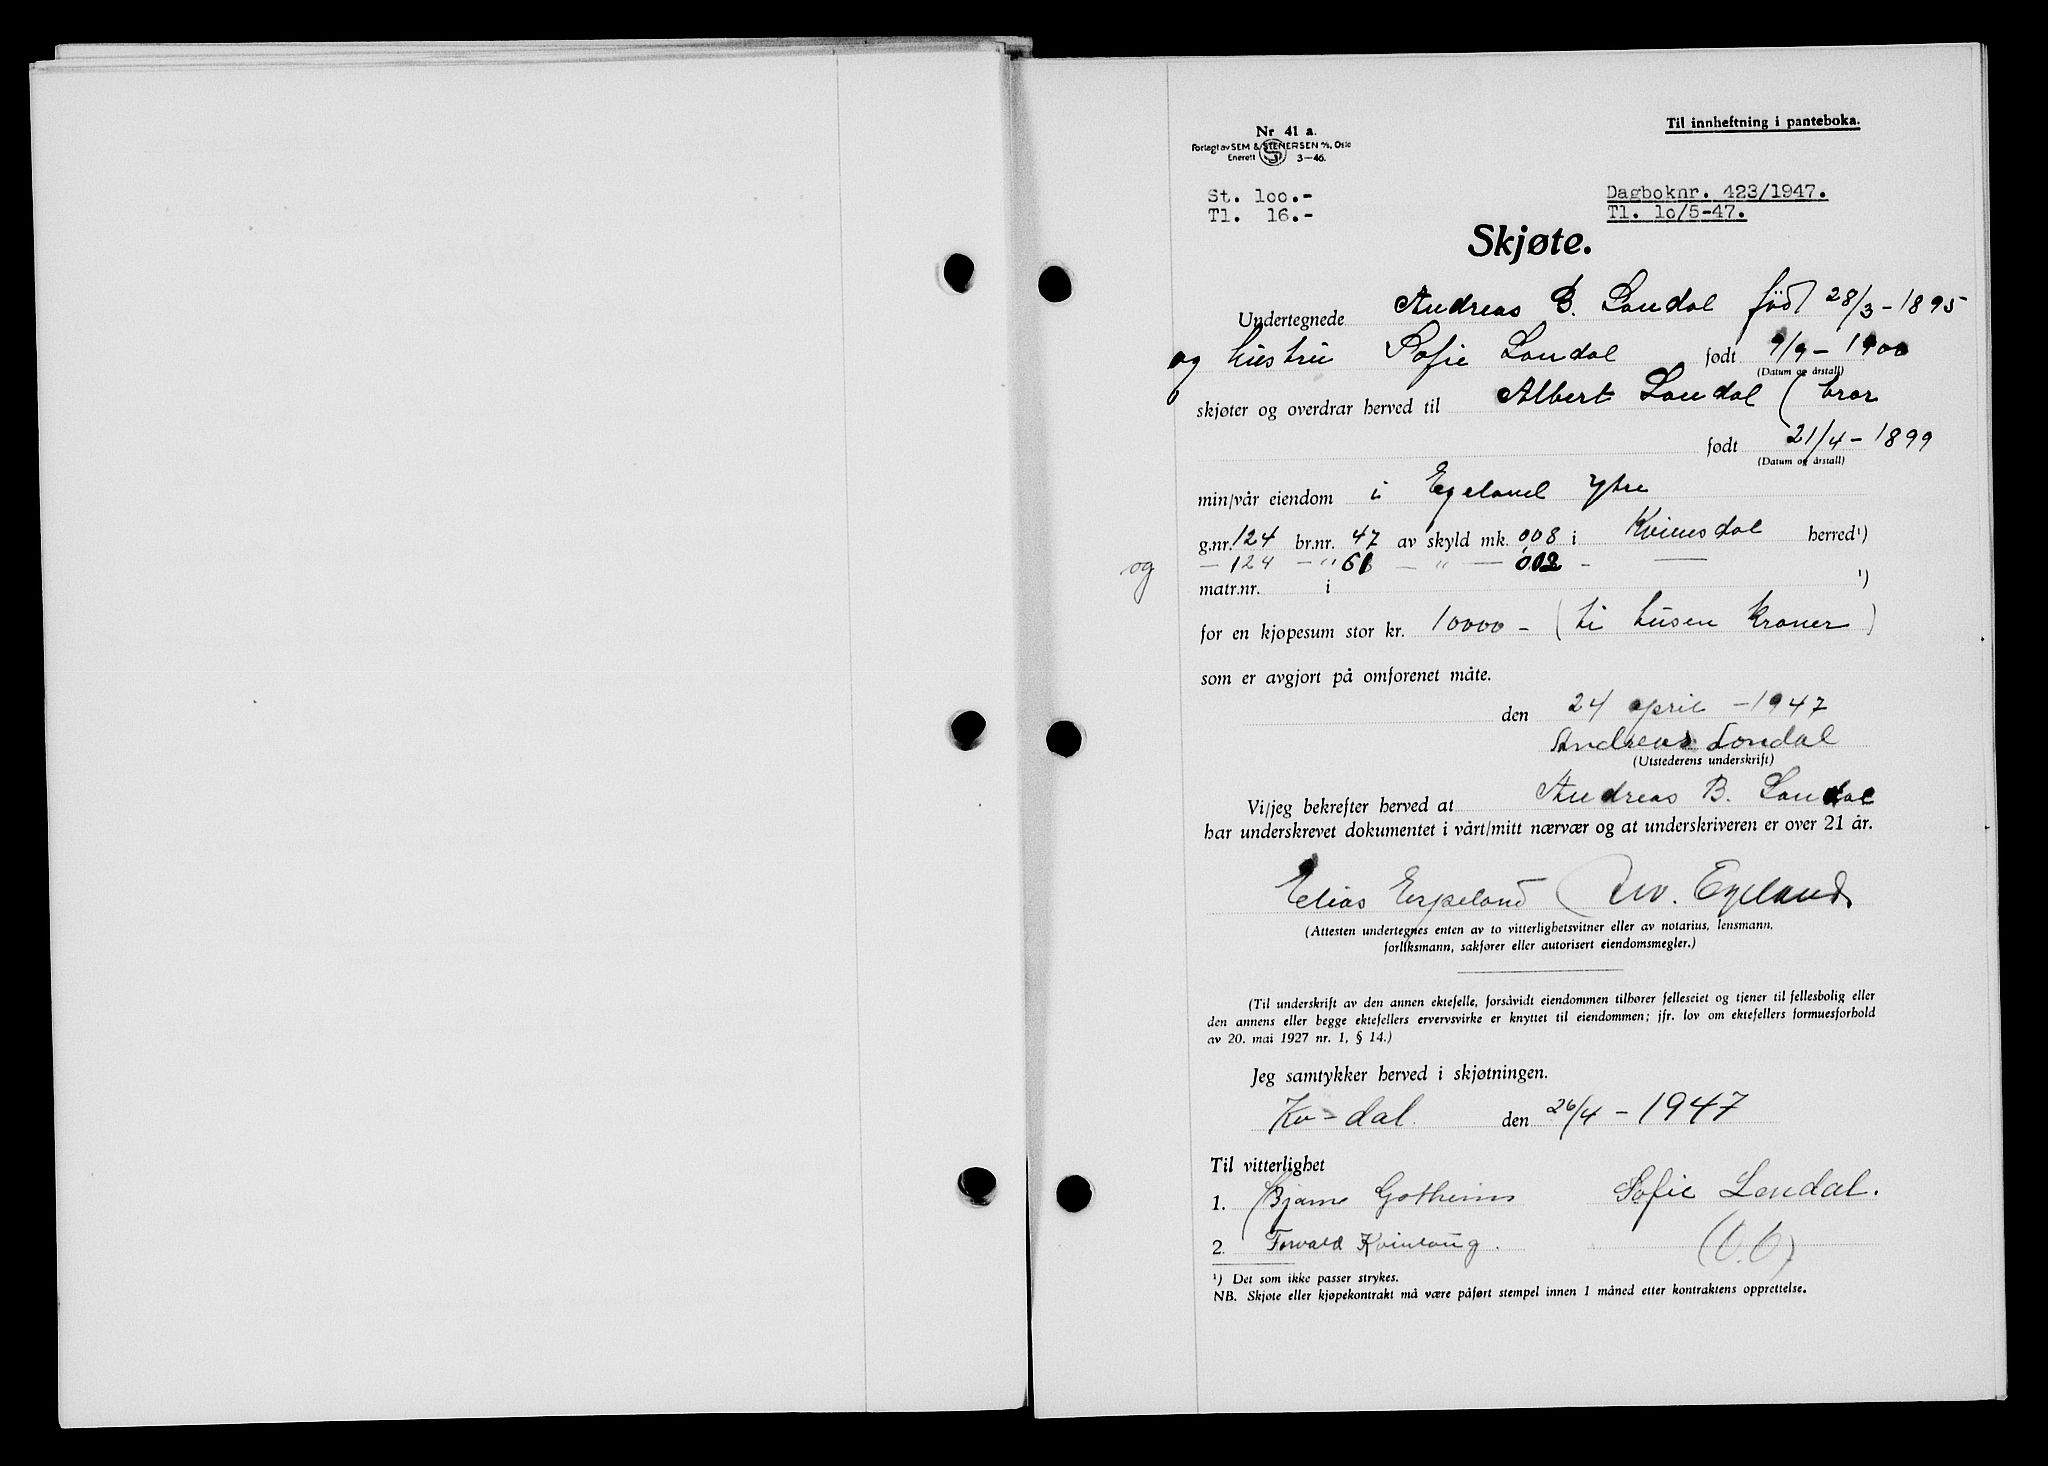 Til innheftning i panteboka.
Nr 41 a.
Forlagt av SEM & STENERSEN A/S, Oslo
Enerett S 3—46.
St. loo.-
Tl. 16.-
Dagboknr. 423/1947.
Tl. lo/5-47.
Skjøte.
Undertegnede Andreas B. Londal født 28/3-1895
og hustru Sofie Londal født 9/9-1900
(Datum og årstall)
skjøter og overdrar herved til Albert Londal (bror
født 21/4-1899
(Datum og årstall)
min/vår eiendom i Egeland ytre
g.nr. 124 br.nr. 47 av skyld mk. 0,08 i Kvinesdal herred¹)
og — 124 — " 61 — " — 0,02 - —
matr.nr. i ¹)
for en kjøpesum stor kr. 10000 - (ti tusen kroner)
som er avgjort på omforenet måte.
den 24 april - 1947
Andreas Londal
(Utstederens underskrift)
Vi/jeg bekrefter herved at Andreas B. Londal
har underskrevet dokumentet i vårt/mitt nærvær og at underskriveren er over 21 år.
Elias Egeland Egeland
(Attesten undertegnes enten av to vitterlighetsvitner eller av notarius, lensmann,
forliksmann, sakfører eller autorisert eiendomsmegler.)
(Til underskrift av den annen ektefelle, forsåvidt eiendommen tilhører felleseiet og tjener til fellesbolig eller
den annens eller begge ektefellers ervervsvirke er knyttet til eiendommen; jfr. lov om ektefellers formuesforhold
av 20. mai 1927 nr. 1, § 14.)
Jeg samtykker herved i skjøtningen.
Kv-dal. den 26/4-1947
Til vitterlighet
1. Bjarne Gotheim Sofie Londal.
2. Torvald Kvinlaug.
¹) Det som ikke passer strykes.
NB. Skjøte eller kjøpekontrakt må være påført stempel innen 1 måned etter kontraktens opprettelse.